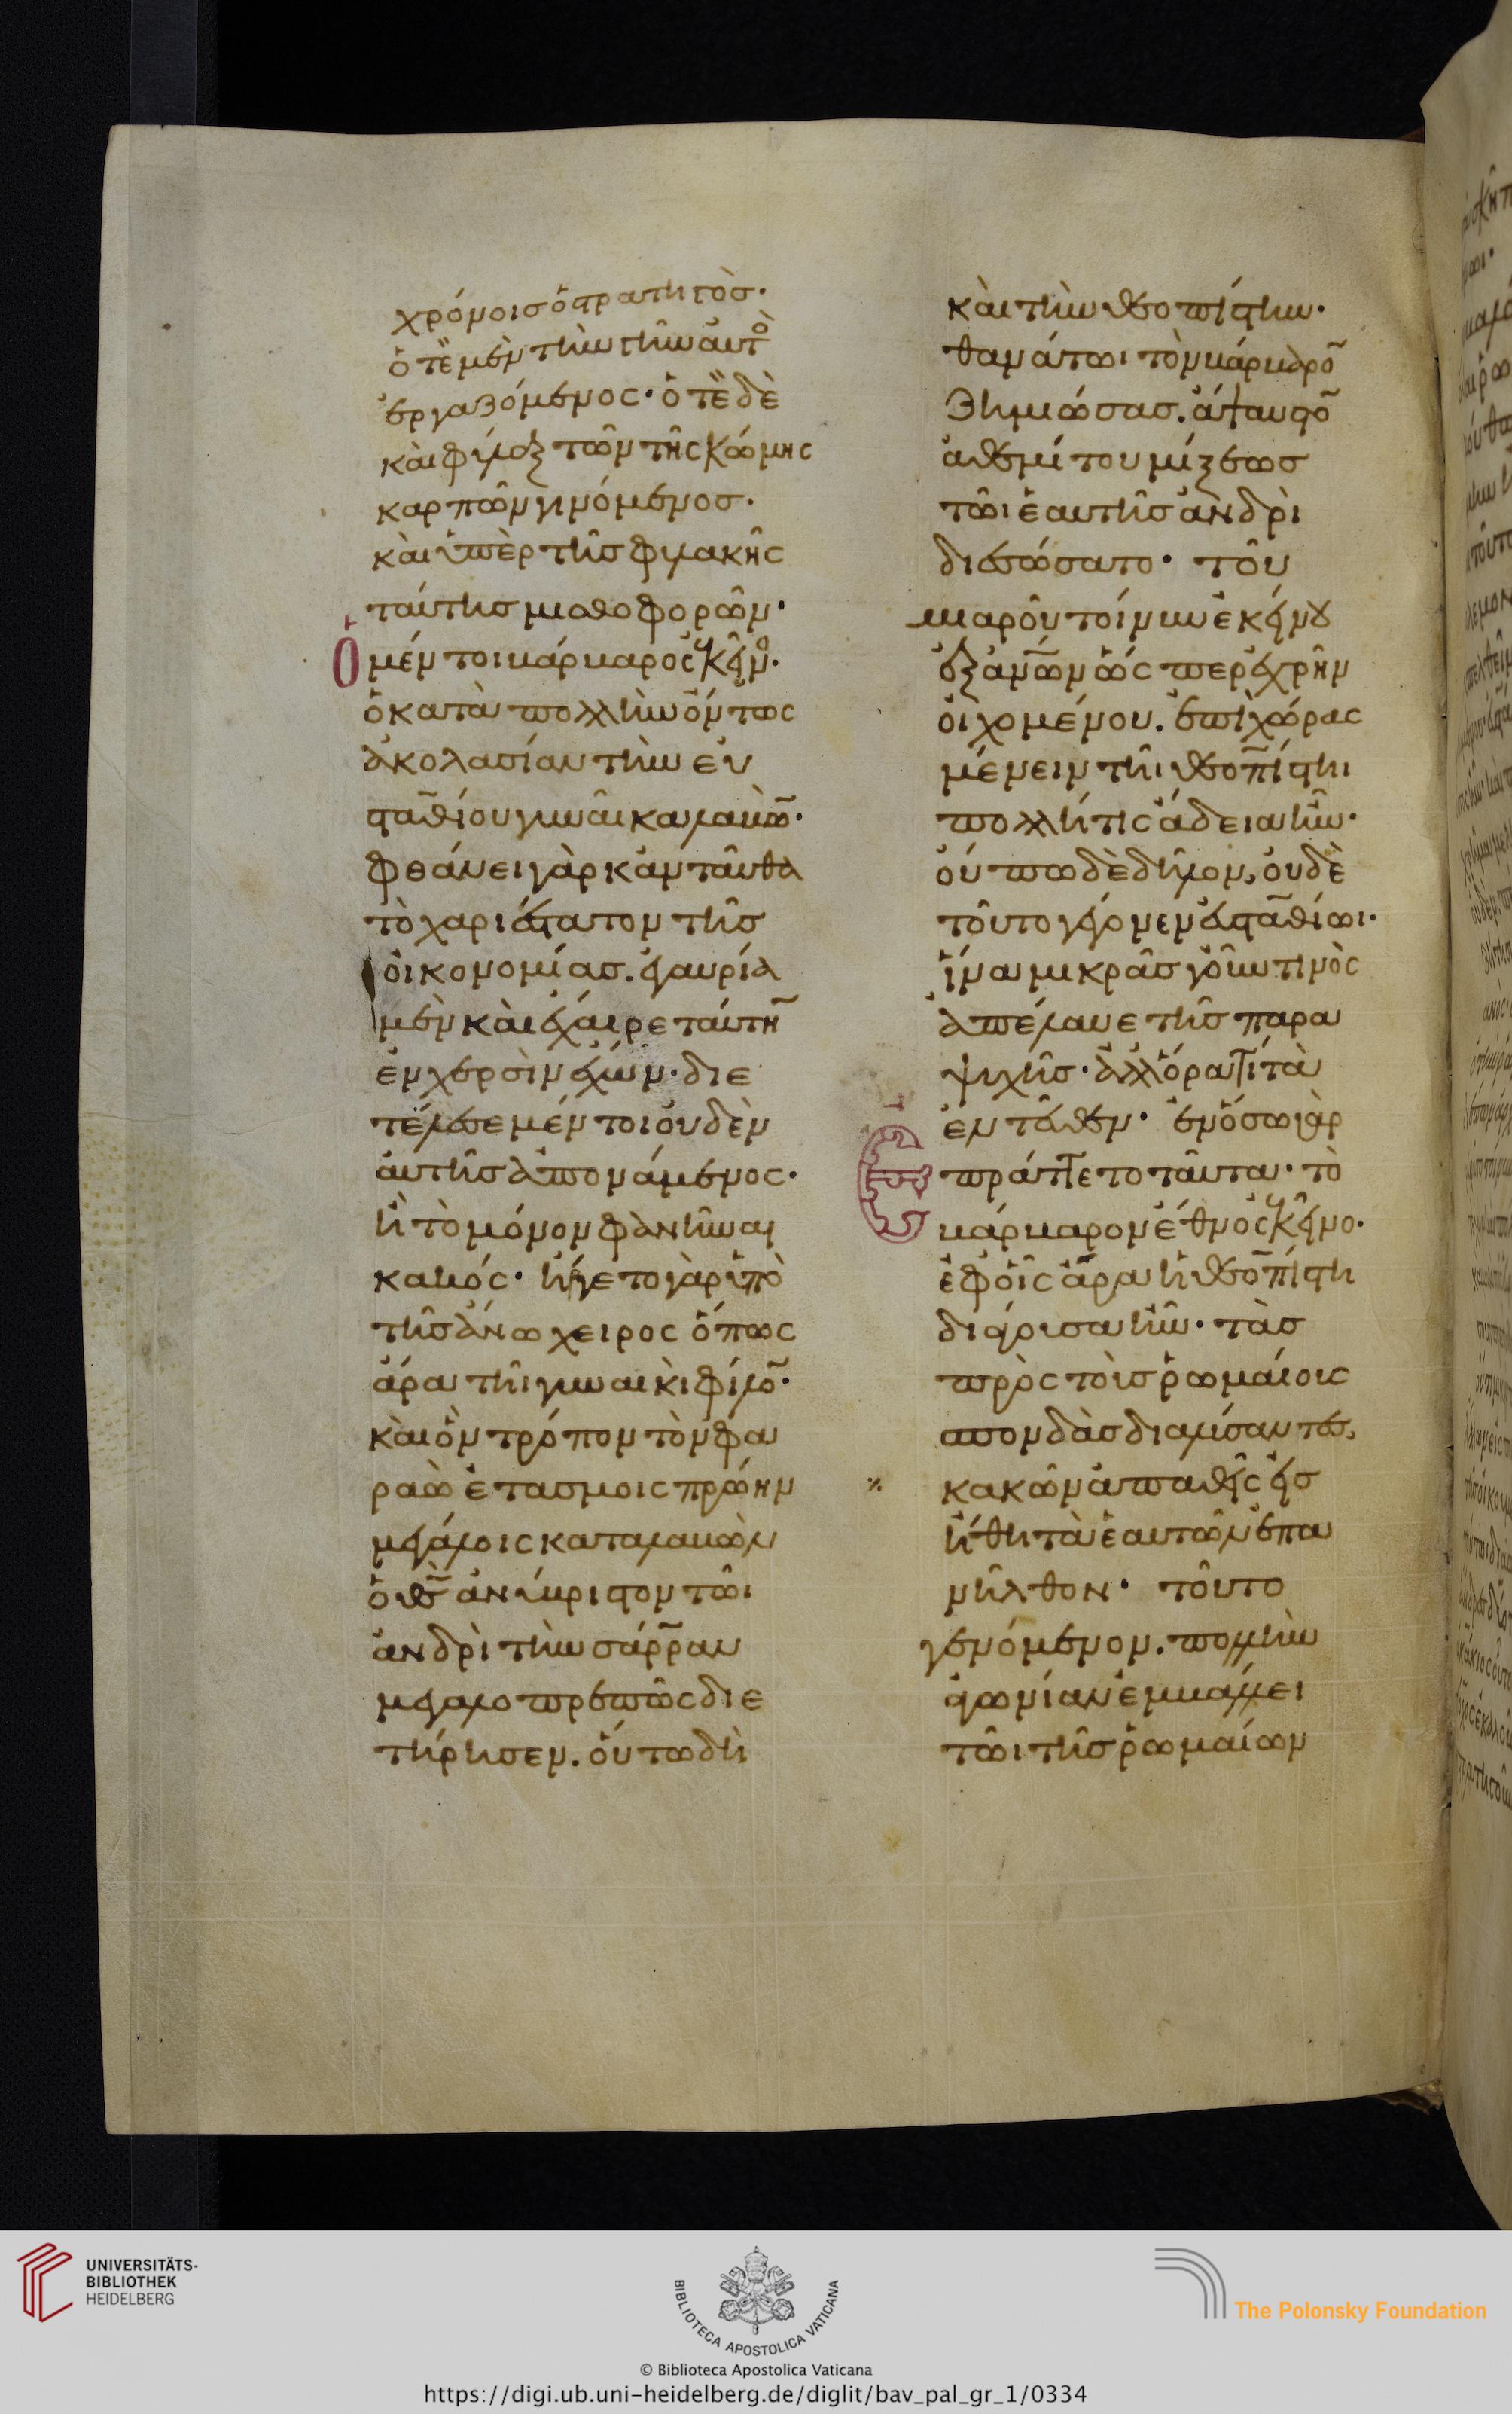 χρόνοισ ὁ στρατηγὸσ·
ὁτὲ μὲν τὴν γῆν αὐτὸ
ἐργαζόμενος· ὁτὲ δὲ
καὶ φύλαξ τῶν τῆς κώμης
καρπῶν γινόμενοσ·
καὶ ὑπὲρ τῆσ φυλακῆς
ταύτησ μισθοφορῶν·
Ὁ μέντοι βάρβαρος ἐκεῖνο·
ὁ κατὰ πολλὴν ὄντως
ἀκολασίαν τὴν εὐ
σταθίου γυναῖκα λαβὼ·
φθάνει γὰρ κἀνταῦθα
τὸ χαριέστατον τῆσ
οἰκονομίασ.
μὲν καὶ ἔχαιρε ταύτη
ἐν χερσὶν ἔχων· διε
τέλεσε μέντοι οὐδὲν
αὐτῆσ ἀπονάμενος·
ἢ τὸ μόνον φανῆναι
κακός· ἤγετο γὰρ ὑπὸ
τῆσ ἄνω χειρος ὅπως
ἄρα τῆι γυναικὶ φίλο·
καὶ ὃν τρόπον τὸν φα
ραὼ ἐτασμοις πρώην
μεγάλοις καταλαβὼν
ὁ θς ἀνύβριστον τῶι
ἀνδρὶ τὴν σάρραν
μεγαλοπρεπῶς διε
τήρησεν. οὕτω δὴ
καὶ τὴν θεοπίστην·
θανάτωι τὸν βάρβαρο
ζημιώσασ. ἄψαυστο
ἀθεμίτου μίξεωσ
τῶι ἑαυτῆσ ἀνδρὶ
διεσώσατο· τοῦ
μιαροῦ τοίνυν ἐκείνου
ἐξ ἀνων ὥς περ ἐχρῆν
οἰχομένου. ἐπὶ χώρας
μένειν τῆι θεοπίστηι
πολλή τις ἄδεια ἦν·
οὔπω δὲ δῆλον, οὐδὲ
τοῦτο γέγονεν εὐσταθίωι·
ἵνα μικρᾶσ γοῦν τινὸς
ἀπέλαυε τῆσ παρα
ψυχῆσ· ἀλλ' ὅρα τί τὰ
ἐντεῦθεν· ἐν ὅσω γὰρ
ἐπράττετο ταῦτα· τὸ
βάρβαρον ἔθνος ἐκεῖνο·
ἐφ οἷς ἄρα ἡ θεοπίστη
διάγουσα ἦν· τὰσ
πρὸς τοὺσ ῥωμαίους
σπονδὰσ διαλύσαντεσ,
κακῶν ἀπαθεῖς εἰσ
ἤθη τὰ ἑαυτῶν ἐπα
νῆλθον· τοῦτο
γενόμενον. πολλὴν
ἀγωνίαν ἐμβάλλει
τῶι τῆσ ῥωμαίων
UNIVERSITÄTS-
BIBLIOTHEK
HEIDELBERG
BIBLIOTECA APOSTOLICA VATICANA
The Polonsky Foundation
© Biblioteca Apostolica Vaticana
https://digi.ub.uni-heidelberg.de/diglit/bav_pal_gr_1/0334